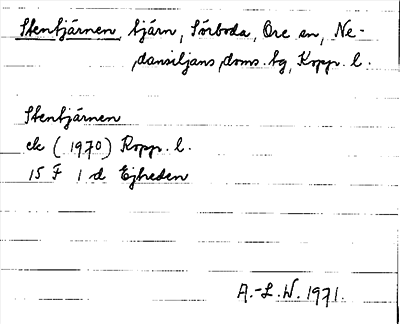 Stentjärnen, tjärn, Sörboda, Ore sn, Ne-
dansiljans doms. tg, Kopp. l.
Stentjärnen
ek (1970) Kopp. l.
15 F 1 d Ejheden
A.-L. W. 1971.